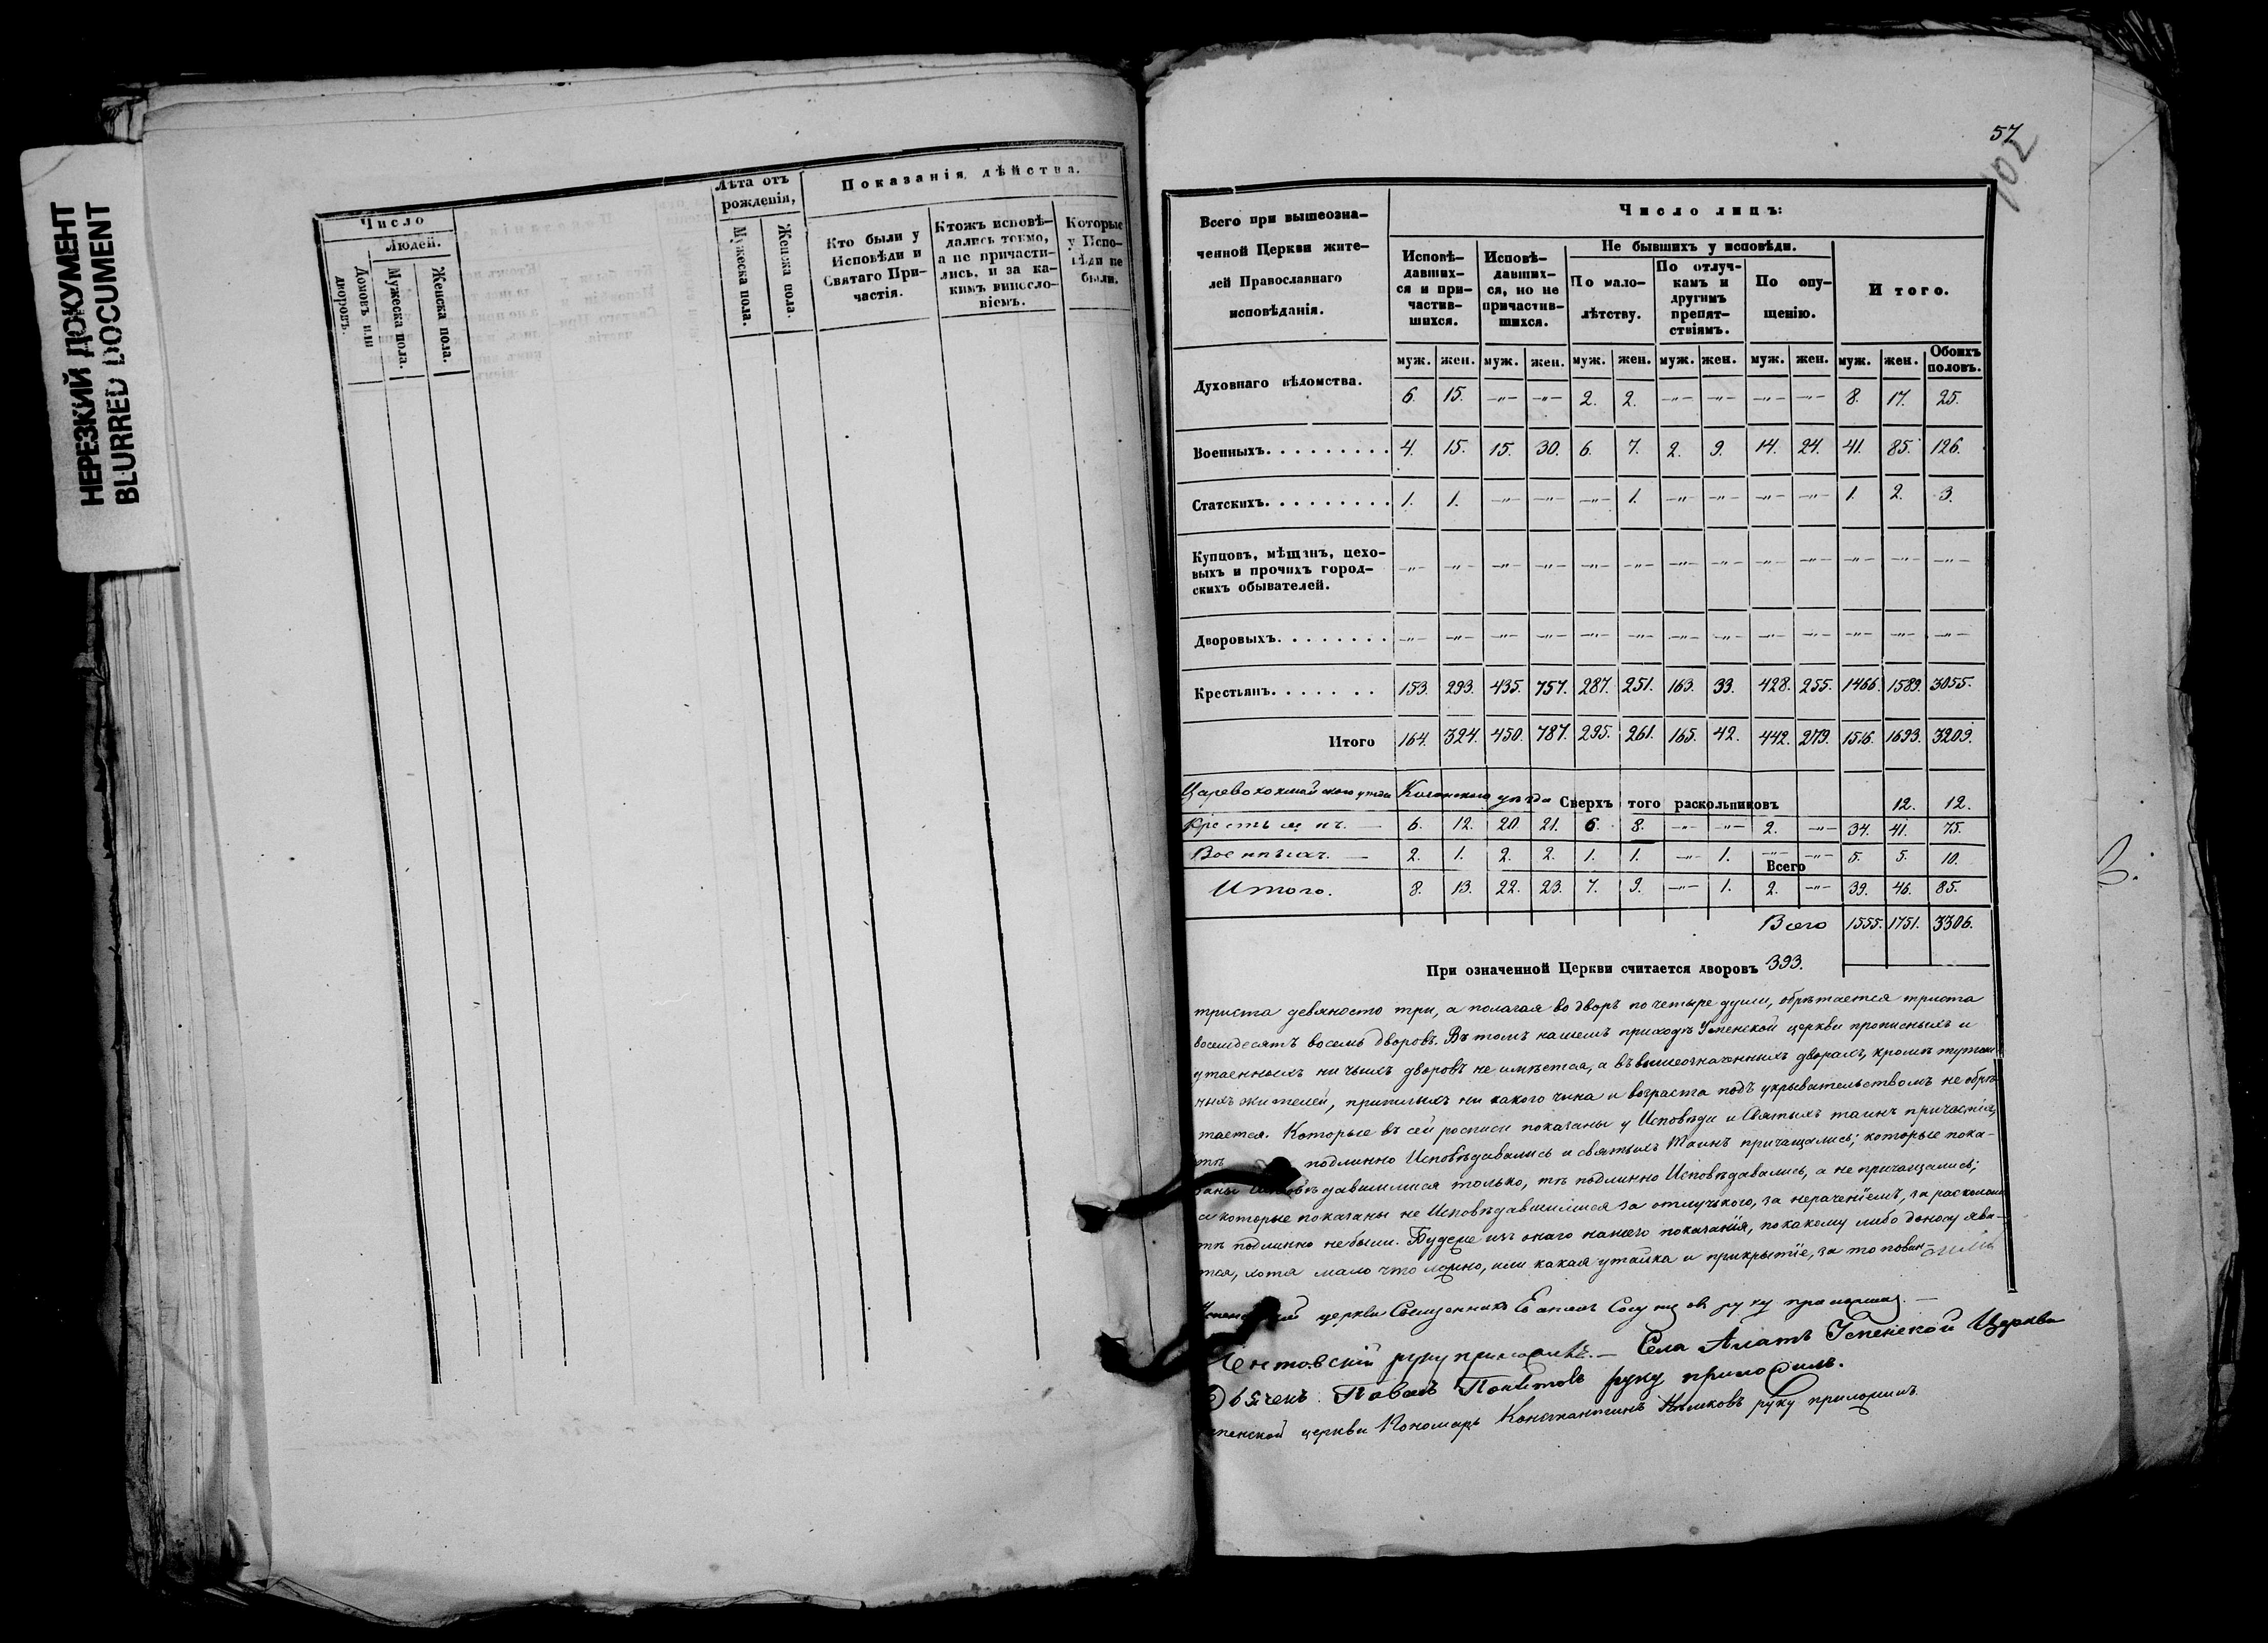 НЕРЕЗКИЙ ДОКУМЕНТ
BLURRED DOCUMENT
Число
Людей.
Домовъ или дворовъ.
Мужеска пола.
Женска пола.
Лѣта отъ рожденія,
Мужеска пола.
Женска пола.
Показанія дѣйства.
Кто были у Исповѣди и Святаго Причастія.
Ктожъ исповѣ-
дались токмо,
а не причасти-
лись, и за ка-
кимъ виносло-
віемъ.
Которые
у Испо-
вѣди не
были.
57
102
Всего при вышеозна-
ченной Церкви жите-
лей Православнаго
исповѣданія.
Число лицъ:
Исповѣ-
давших-
ся и при-
частив-
шихся.
Исповѣ-
давших-
ся, но не
причастив-
шихся.
Не бывшихъ у исповѣди.
По мало-
лѣтству.
По отлуч-
камъ и
другимъ
препят-
ствіямъ.
По опу-
щенію.
Итого.
муж. жен. муж. жен. муж. жен. муж. жен. муж. жен. муж. жен. Обоихъ половъ.
Духовнаго вѣдомства. 6. 15. —„— —„— 2. 2. —„— —„— —„— —„— 8. 17. 25.
Военныхъ. . . . . . . . . 4. 15. 15. 30. 6. 7. 2. 9. 14. 24. 41. 85. 126.
Статскихъ. . . . . . . . . 1. 1. —„— —„— —„— 1. —„— —„— —„— —„— 1. 2. 3.
Купцовъ, мѣщанъ, цехо-
выхъ и прочихъ город- —„— —„— —„— —„— —„— —„— —„— —„— —„— —„— —„— —„— —„—
скихъ обывателей.
Дворовыхъ. . . . . . . . —„— —„— —„— —„— —„— —„— —„— —„— —„— —„— —„— —„— —„—
Крестьянъ. . . . . . . 153. 293. 435. 757. 287. 251. 163. 33. 428. 255. 1466. 1589. 3055.
Итого 164. 324. 450. 787. 295. 261. 165. 42. 442. 279. 1516. 1693. 3209.
Царевококшайского уѣзда Казанского уѣзда Сверхъ того раскольниковъ 12. 12.
Крестьянъ. — 6. 12. 20. 21. 6. 8. —„— —„— 2. —„— 34. 41. 75.
Военныхъ. — 2. 1. 2. 2. 1. 1. —„— 1. —„— —„— 5. 5. 10.
Всего
Итого. 8. 13. 22. 23. 7. 9. —„— 1. 2. —„— 39. 46. 85.
Всего 1555. 1751. 3306.
При означенной Церкви считается дворовъ 393.
триста девяносто три, а полагая во дворъ по четыре души, обрѣтается триста
восемдесятъ восемь дворовъ. Въ томъ нашемъ приходѣ Успенской церкви прописныхъ и
утаенныхъ ни чьихъ дворовъ не имѣется, а въ вышеозначенныхъ дворахъ, кромѣ тутош-
ныхъ жителей, пришлыхъ ни какого чина и возраста подъ укрывательствомъ не обрѣ-
тается. Которые въ сей росписи показаны у Исповѣди и Святыхъ таинъ причастія,
тѣ подлинно Исповѣдавались и святыхъ Таинъ причащались; которые пока-
заны Исповѣдавшимися только, тѣ подлинно Исповѣдавались, а не причащались;
а которые показаны не Исповѣдавшимися за отлучкою, за нераченіемъ, за расколомъ
тѣ подлинно не были. Будеже изъ онаго нашего показанія, по какому либо доносу яви-
тся, хотя мало что ложно, или какая утайка и прикрытіе, за то повин-
церкви Священникъ руку приложил. —
руку приложилъ. — Села Алатъ Успенской Церкви
Дьяченъ Павелъ руку приложилъ.
Успенской церкви Пономарь Константинъ руку приложилъ.